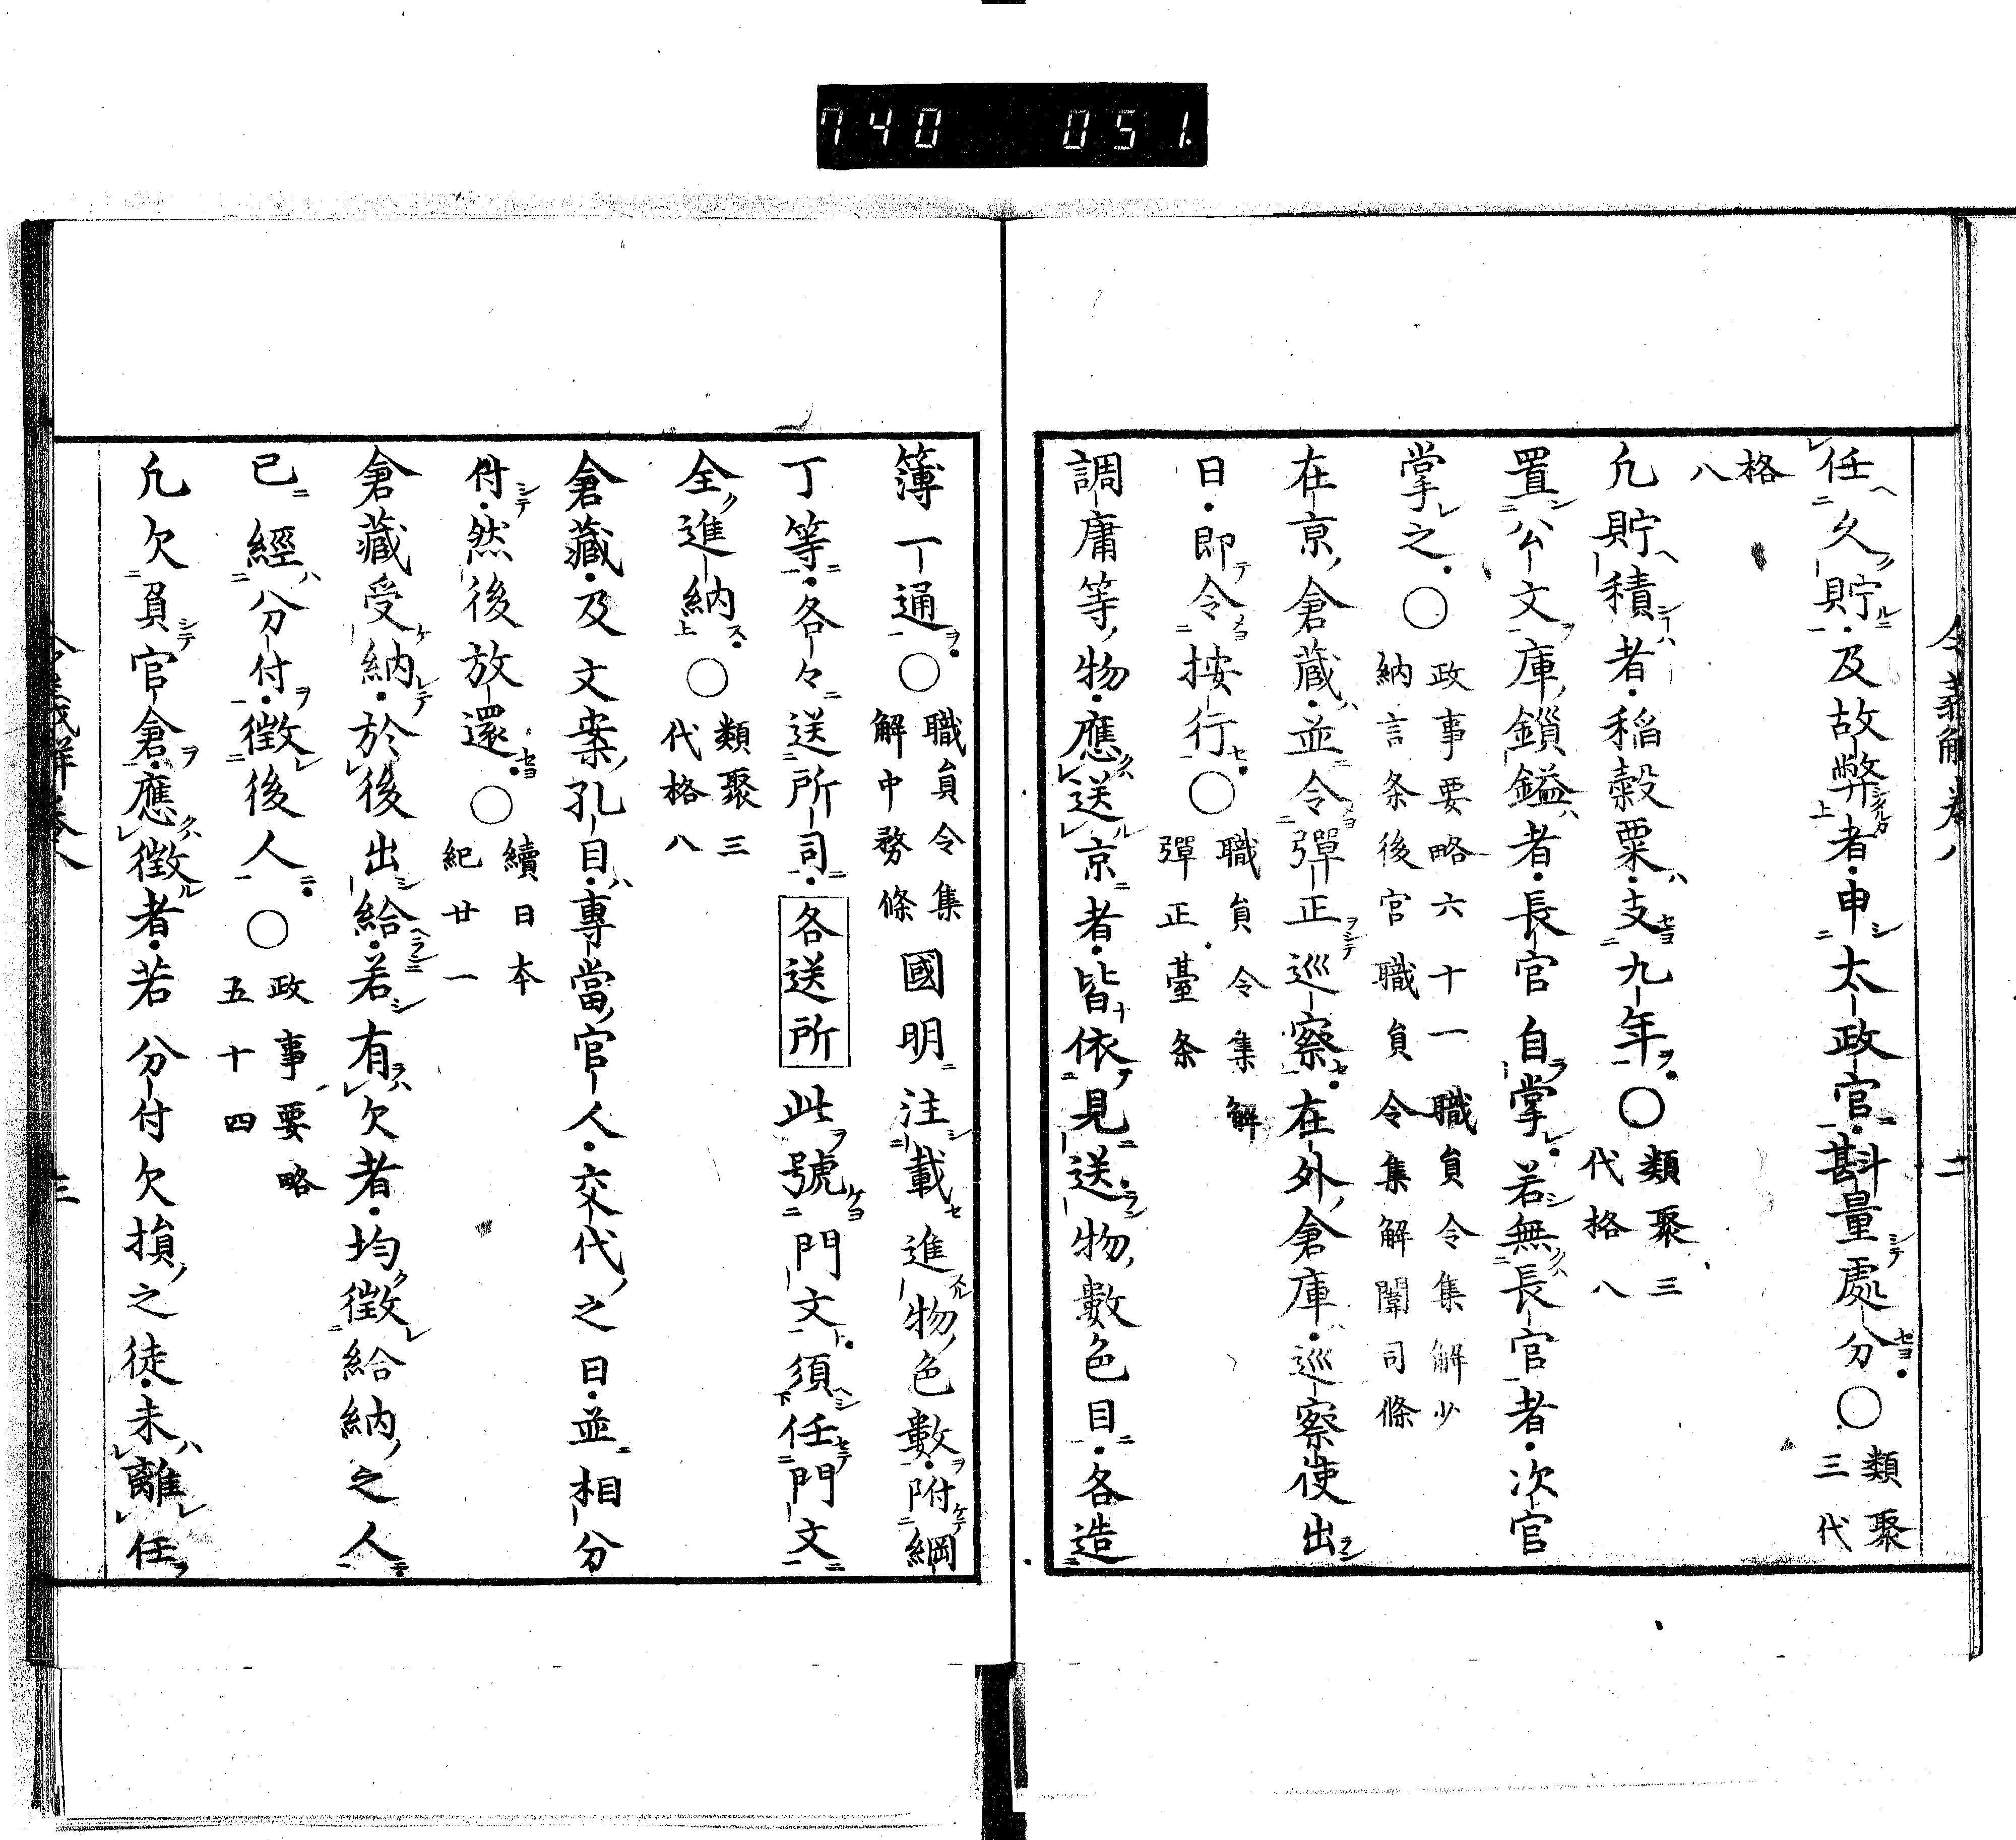 740 051.
令義解卷八 二
任久貯及故弊者申太政官斟量處分○類聚三代
格八
凡貯積者稻穀粟支九年○類聚三代格八
置公文庫鎖鎰者長官自掌若無長官者次官
掌之○政事要略六十一職員令集解少納言条後官職員令集解闈司條
在京倉藏並令彈正巡察在外倉庫巡察使出
日即令按行○職員令集解彈正臺条
調庸等物應送京者皆依見送物數色目各造
簿一通○職員令集解中務條國明注載進物色數附綱
丁等各々送所司各送所此號門文須任門文
全進納○類聚三代格八
倉藏及文案孔目專當官人交代之日並相分
付然後放還○續日本紀廿一
倉藏受納於後出給若有欠者均徵給納之人
已經分付徵後人○政事要略五十四
凡欠負官倉應徵者若分付欠損之徒未離任
令義解卷八 三